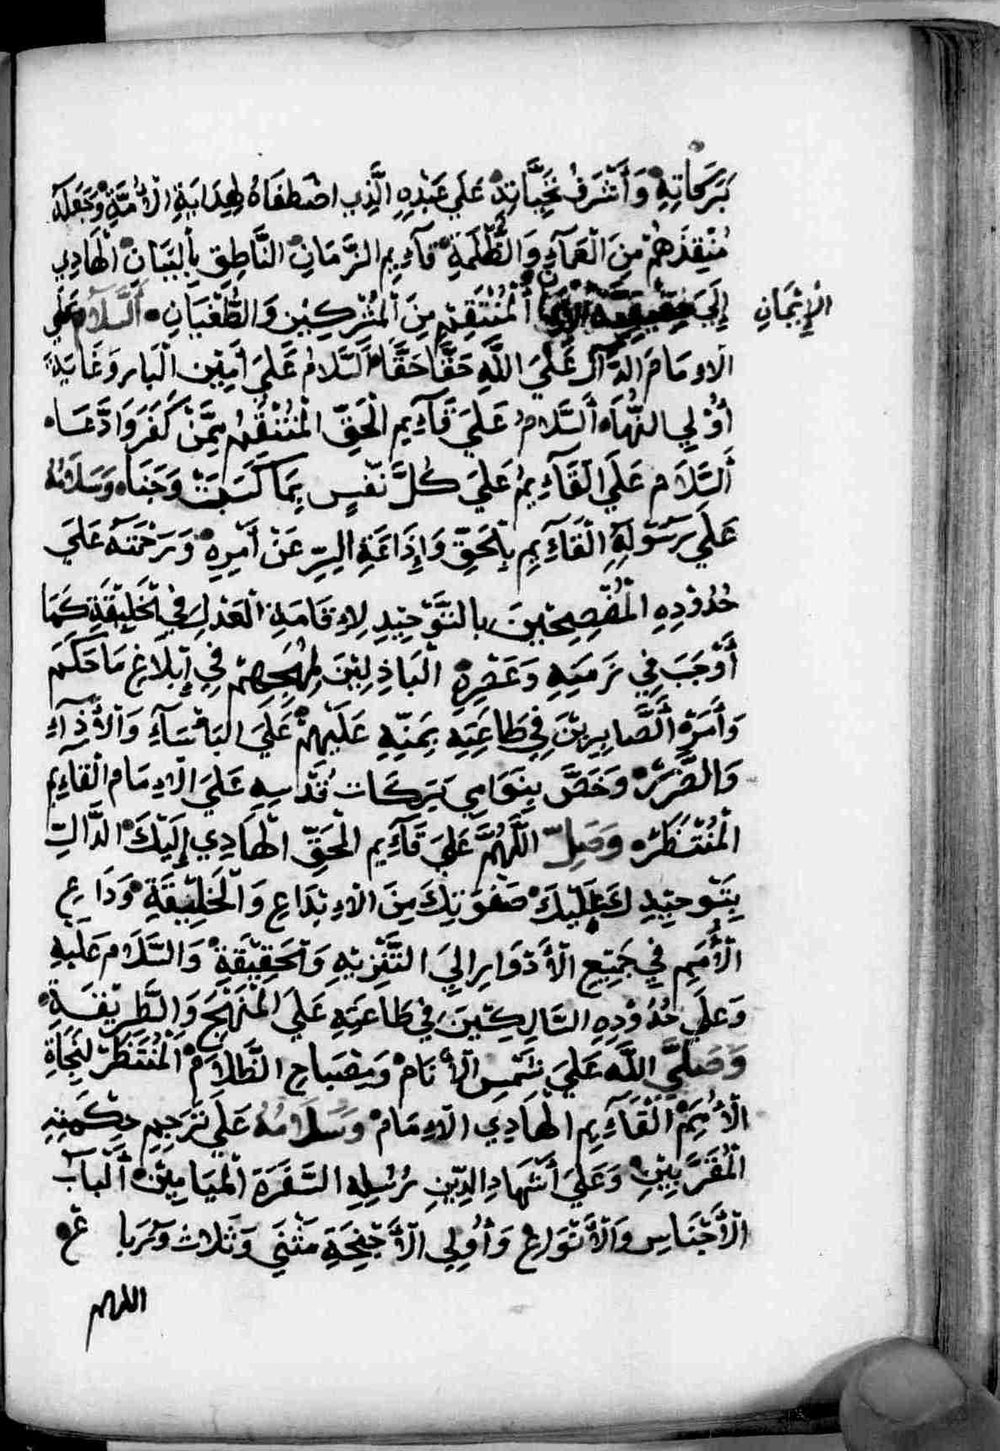 بَرَكَاتِهِ وَأَشْرَفُ تَحِيَّاتِهِ عَلَي عَبْدِهِ الَّذِي اصْطَفَاهُ لِهِدَايَةِ الْأُمَّةِ وَجَعَلَهُ
مُنْقِذَهُمْ مِنَ الْعَمَآءِ وَالظُّلْمَةِ قَآئِمِ الزَّمَانِ النَّاطِقِ بِالْبَيَانِ الْهَادِي
إِلَي حَقِيقَةِ أَلْمُنْتَقِمِ مِنَ الْمُشْرِكِيْنَ وَالطُّغْيَانِ أَلسَّلَامُ عَلَي
الْإِيْمَانِ
الْإِمَامِ الدَّآلِّ عَلَيَ اللَّهِ حَقًّا حَقًّا أَلسَّلَامُ عَلَيَ أَمِيْنِ الْبَارِ وَغَايَةِ
أُوْلِي النُّهَاه أَلسَّلَامُ عَلَيَ قَآئِمِ الْحَقِّ الْمُنْتَقِمِ مِمَّنْ كَفَرَ وَادَّعَاه
أَلسَّلَام عَلَي الْقَآئِمِ عَلَيَ كُلِّ نَفْسٍ بِمَا كَسَبَتْ وَجَنَاه وَسَلَامُهُ
عَلَي رَسُوْلِهِ الْقَآئِمِ بِالْحَقِّ وَإِذَاعَةِ السِّرِّ عَنْ أَمْرِهِ وَرَحْمَتُهُ عَلَيَ
حُدُوْدِهِ الْمُفْصِحِيْنَ بِالتَّوْحِيْدِ لِإِقَامَةِ الْعَدْلِ فِي الْخَلِيْقَةِ كَمَا
أَوْجَبَ فِي زَمَنِهِ وَعَصْرِهِ الْبَاذِلِيْنَ لِمُهَجِهِمْ فِي إِبْلَاغِ مَا حَكَمَ
وَأَمَرَ أَلصَّابِرِيْنَ فِي طَاعَتِهِ بِمَنِّهِ عَلَيْهِمْ عَلَيَ الْبَأْسَآءِ وَالْأَذَآءِ
وَالضَّرَرِ وَخَصَّ بِنَوَامِي بَرَكَاتِ قُدْسِهِ عَلَيَ الْإِمَامِ الْقَآئِمِ
الْمُنْتَظَرْه وَصَلِّ اللَّهُمَّ عَلَيَ قَآئِمِ الْحَقِّ الْهَادِي إِلَيْكَ الدَّالِّ
بِتَوْحِيْدِكَ عَلَيْكَ صَفْوَتِكَ مِنَ الْإِبْدَاعِ وَالْخَلِيْقَةِ وَدَاعِ
الْأُمَمِ فِي جَمِيْعِ الْأَدْوَارِ إِلَيَ التَّنْزِيْهِ وَالْحَقِيْقَةِ وَالسَّلَام عَلَيْهِ
وَعَلَي حُدُوْدِهِ السَّالِكِيْنَ فِي طَاعَتِهِ عَلَيَ الْمَنْهَجِ وَالطَّرِيْقَةِ
وَصَلَّيَ اللَّه عَلَيَ شَمْسِ الْأَنَامْ وَمِصْبَاحِ الظَّلَامْ الْمُنْتَظَرْ لِنَجَاةِ
الْأُمَمْ الْقَآئِمِ الْهَادِي الْإِمَامْ وَسَلَامُهُ عَلَي تَرَاجِمِ حِكْمَتِهِ
الْمُقَرَّبِيْنِ وَعَلَيَ أَشْهَادِ الدِّيْنِ رُسُلِهِ السَّفَرَةِ الْمَيَامِيْن أَلْبَابِ
الْأَجْنَاسِ وَالْأَنْوَاعْ وَأُوْلِي الْأَجْنِحَةِ مَثْنَي وَثَلَاث وَرُبَاعْ
اللهم